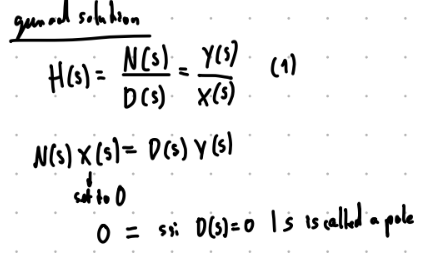 general solution
H(s) = N(s)/D(s) = Y(s)/X(s) (1)
N(s) X(s) = D(s) Y(s)
↓
set to 0
0 = ssi D(s)=0 | s is called a pole